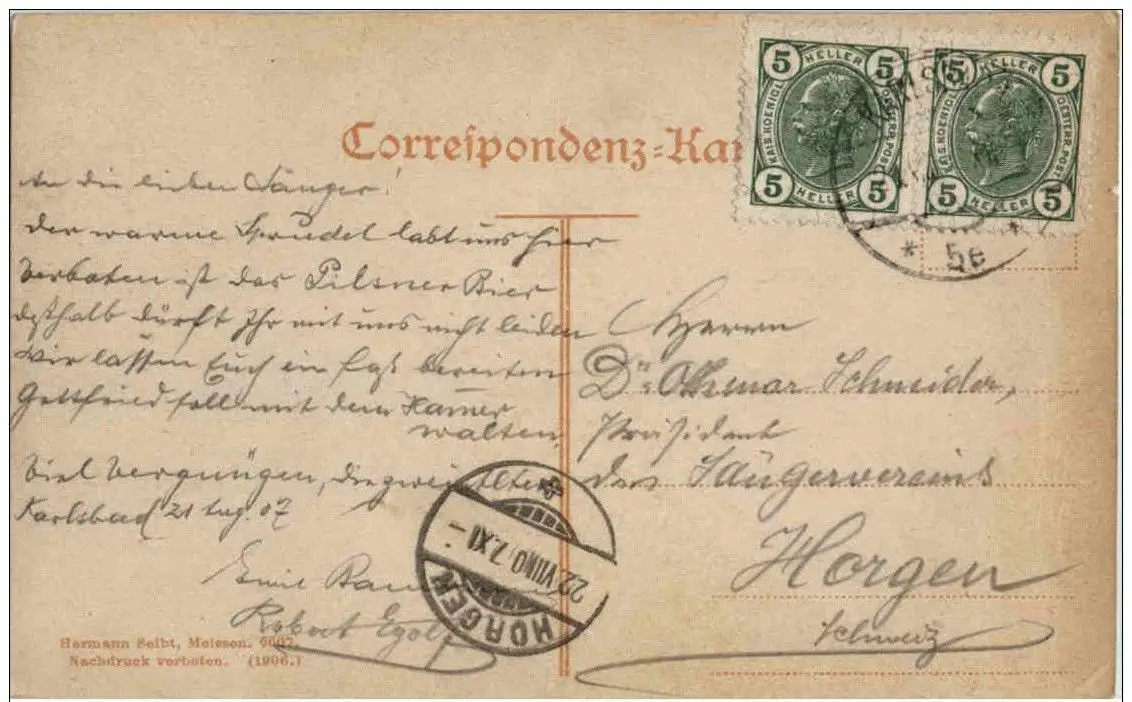 Correspondenz=Kar
5 HELLER 5
KAIS. KOENIGL. OESTERR. POST
5 HELLER 5
5 HELLER 5
KAIS. KOENIGL. OESTERR. POST
5 HELLER 5
* 5e *
An die lieben Sänger!
Der warme Sprudel labt uns hier
Verboten ist das Pilsner Bier
deßhalb dürft Ihr mit uns nicht leiden
Wir lassen Euch ein bereiten
Gottfried soll mit dem
walten.
Viel Vergnügen, die zwei Alten
Karlsbad 21 Aug. 07
Emil
Robert Egolf
Herrn
Dr. Othmar Schneider,
Präsident
des Sängervereins
Horgen
Schweiz
22.VIII.07.XI-
HORGEN
Hermann Seibt, Meissen. 6607.
Nachdruck verboten. (1906.)